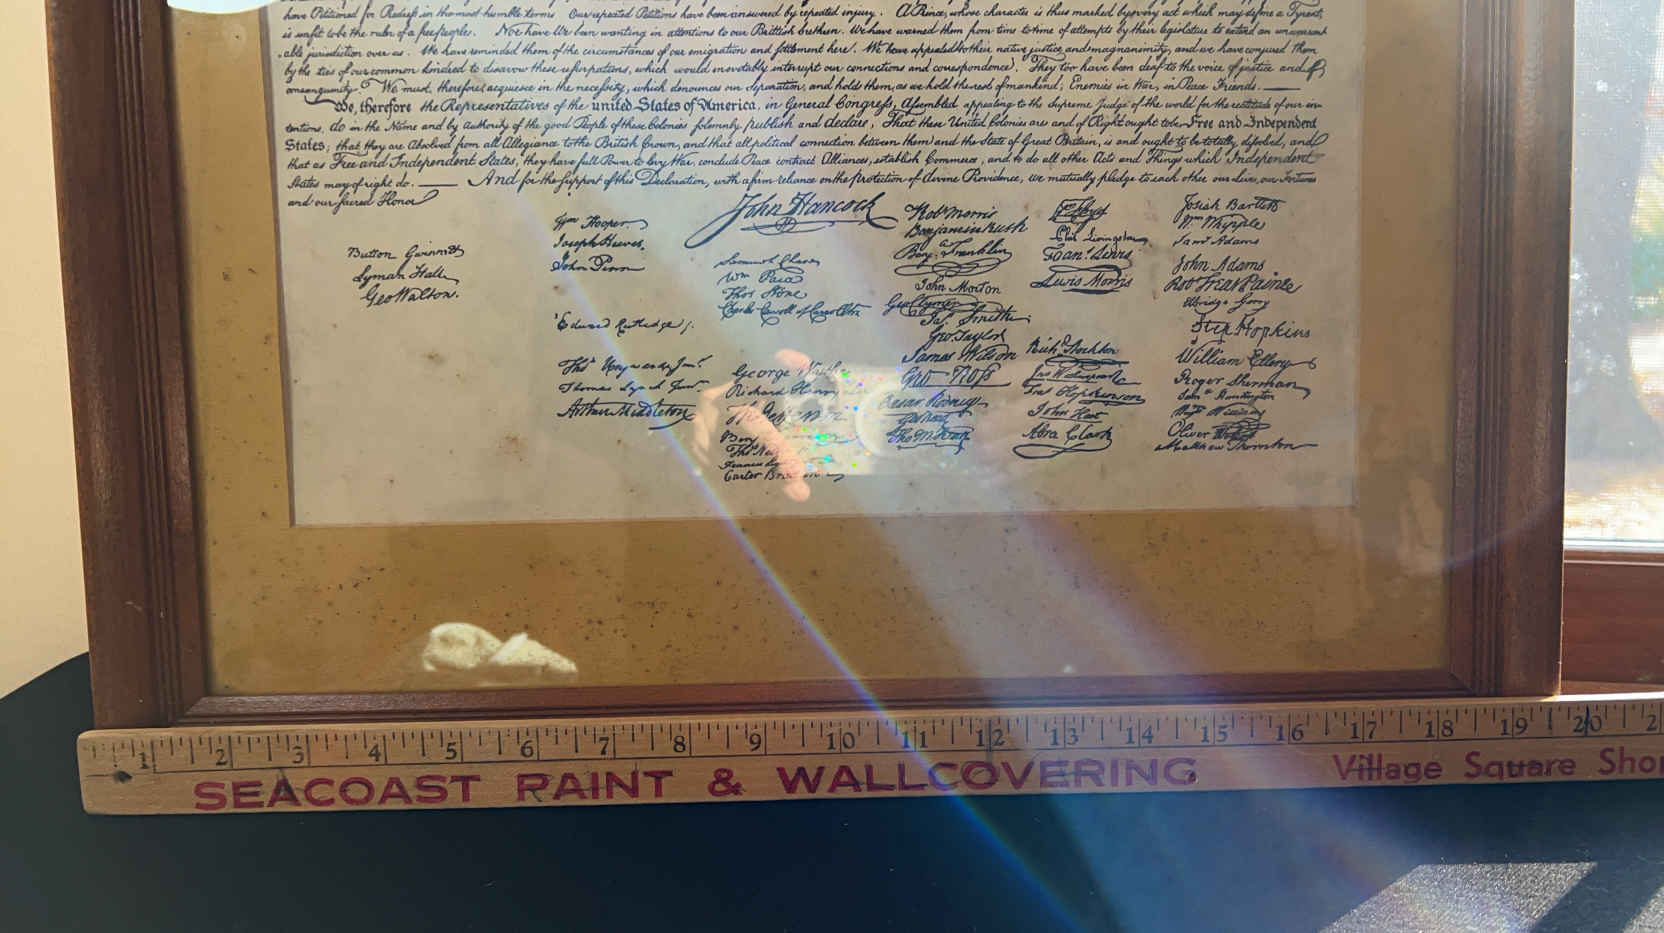 have Petitioned for Redress in the most humble terms Our repeated Petitions have been answered by repeated injury. A Prince, whose character is thus marked by every act which may define a Tyrant,
is unfit to be the ruler of a free people. Nor have We been wanting in attentions to our Brittish brethren. We have warned them from time to time of attempts by their legislature to extend an unwarrant
able jurisdiction over us. We have reminded them of the circumstances of our emigration and settlement here. We have appealed to their native justice and magnanimity, and we have conjured them
by the ties of our common kindred to disavow these usurpations, which would inevitably interrupt our connections and correspondence. They too have been deaf to the voice of justice and of
consanguinity. We must, therefore, acquiesce in the necessity, which denounces our Separation, and hold them, as we hold the rest of mankind, Enemies in War, in Peace Friends.
We, therefore the Representatives of the united States of America, in General Congress, Assembled appealing to the Supreme Judge of the world for the rectitude of our in-
tentions, do in the Name and by Authority of the good People of these Colonies solemnly publish and declare, That these United Colonies are and of Right ought to be Free and Independent
States; that they are Absolved from all Allegiance to the British Crown, and that all political connection between them and the State of Great Britain, is and ought to be totally dissolved, and
that as Free and Independent States, they have full Power to levy War, conclude Peace contract Alliances, establish Commerce, and to do all other Acts and Things which Independent
States may of right do. And for the support of this Declaration, with a firm reliance on the Protection of divine Providence, we mutually pledge to each other our Lives, our Fortunes
and our sacred Honor
Button Gwinnett
Lyman Hall
Geo Walton.
Wm Hooper
Joseph Hewes,
John Penn
Edward Rutledge
Thos Heyward Junr
Thomas Lynch Junr
Arthur Middleton
John Hancock
Samuel Chase
Wm Paca
Thos Stone
Charles Carroll of Carrollton
George Wythe
Richard Henry
Carter Braxton
Robt Morris
Benjamin Rush
Benj. Franklin
John Morton
Geo Clymer
Jas. Smith
Geo. Taylor
James Wilson
Geo Ross
Caesar Rodney
Geo Read
Tho M:Kean
Wm Floyd
Phil. Livingston
Frans. Lewis
Lewis Morris
Richd. Stockton
Jno Witherspoon
Fras. Hopkinson
John Hart
Abra Clark
Josiah Bartlett
Wm Whipple
Saml Adams
John Adams
Robt Treat Paine
Elbridge Gerry
Step. Hopkins
William Ellery
Roger Sherman
Saml Huntington
Wm Williams
Oliver Wolcott
Matthew Thornton
1 2 3 4 5 6 7 8 9 10 11 12 13 14 15 16 17 18 19 20 2
SEACOAST PAINT & WALLCOVERING Village Square Sho